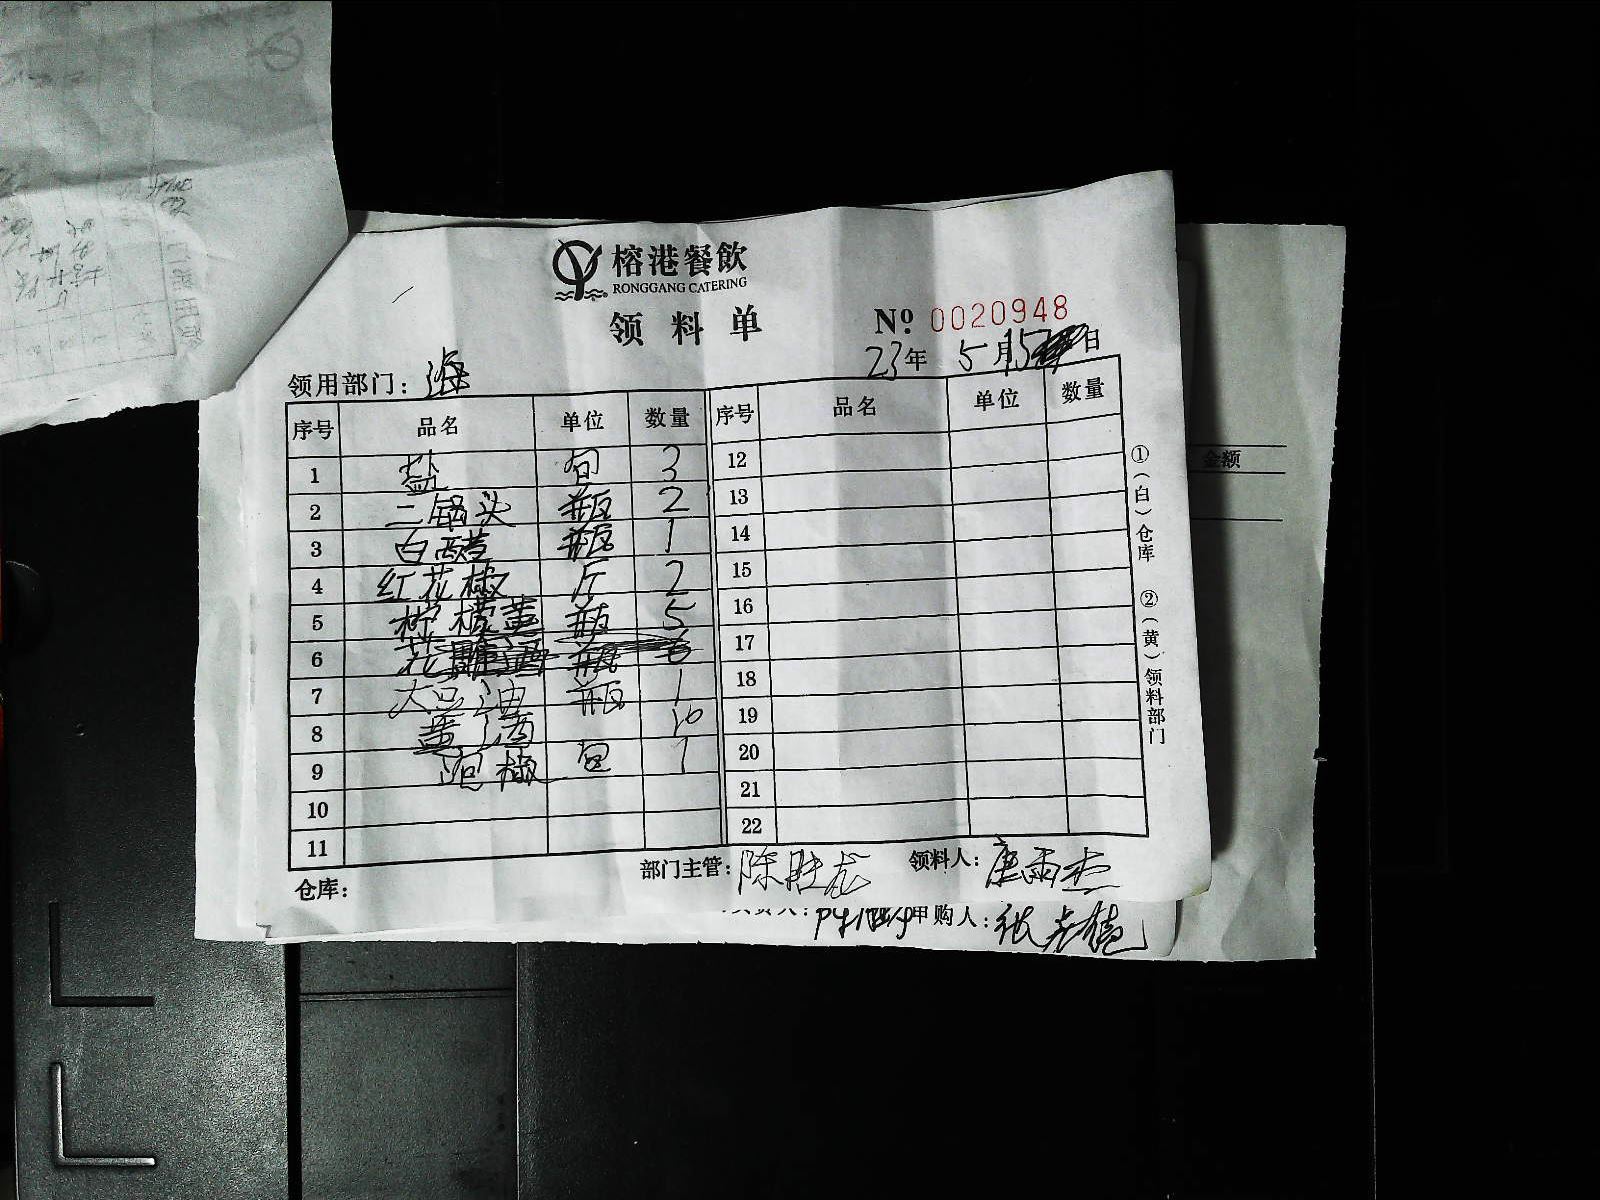 榕港餐飲
RONGGANG CATERING
领料单
№ 0020948
23年 5月15日
领用部门： 海
序号 品名 单位 数量 序号 品名 单位 数量
1 盐 包 3 12
2 二锅头 瓶 2 13
3 白醋 瓶 1 14
4 红花椒 斤 2 15
5 柠檬黄 瓶 5 16
6 花雕酒 瓶 6 17
7 大豆油 瓶 1 18
8 黄酒 10 19
9 椒 包 1 20
10 21
11 22
①（白）仓库 ②（黄）领料部门
仓库： 部门主管：陈胜龙 领料人：唐雨杰
申购人：张
金额